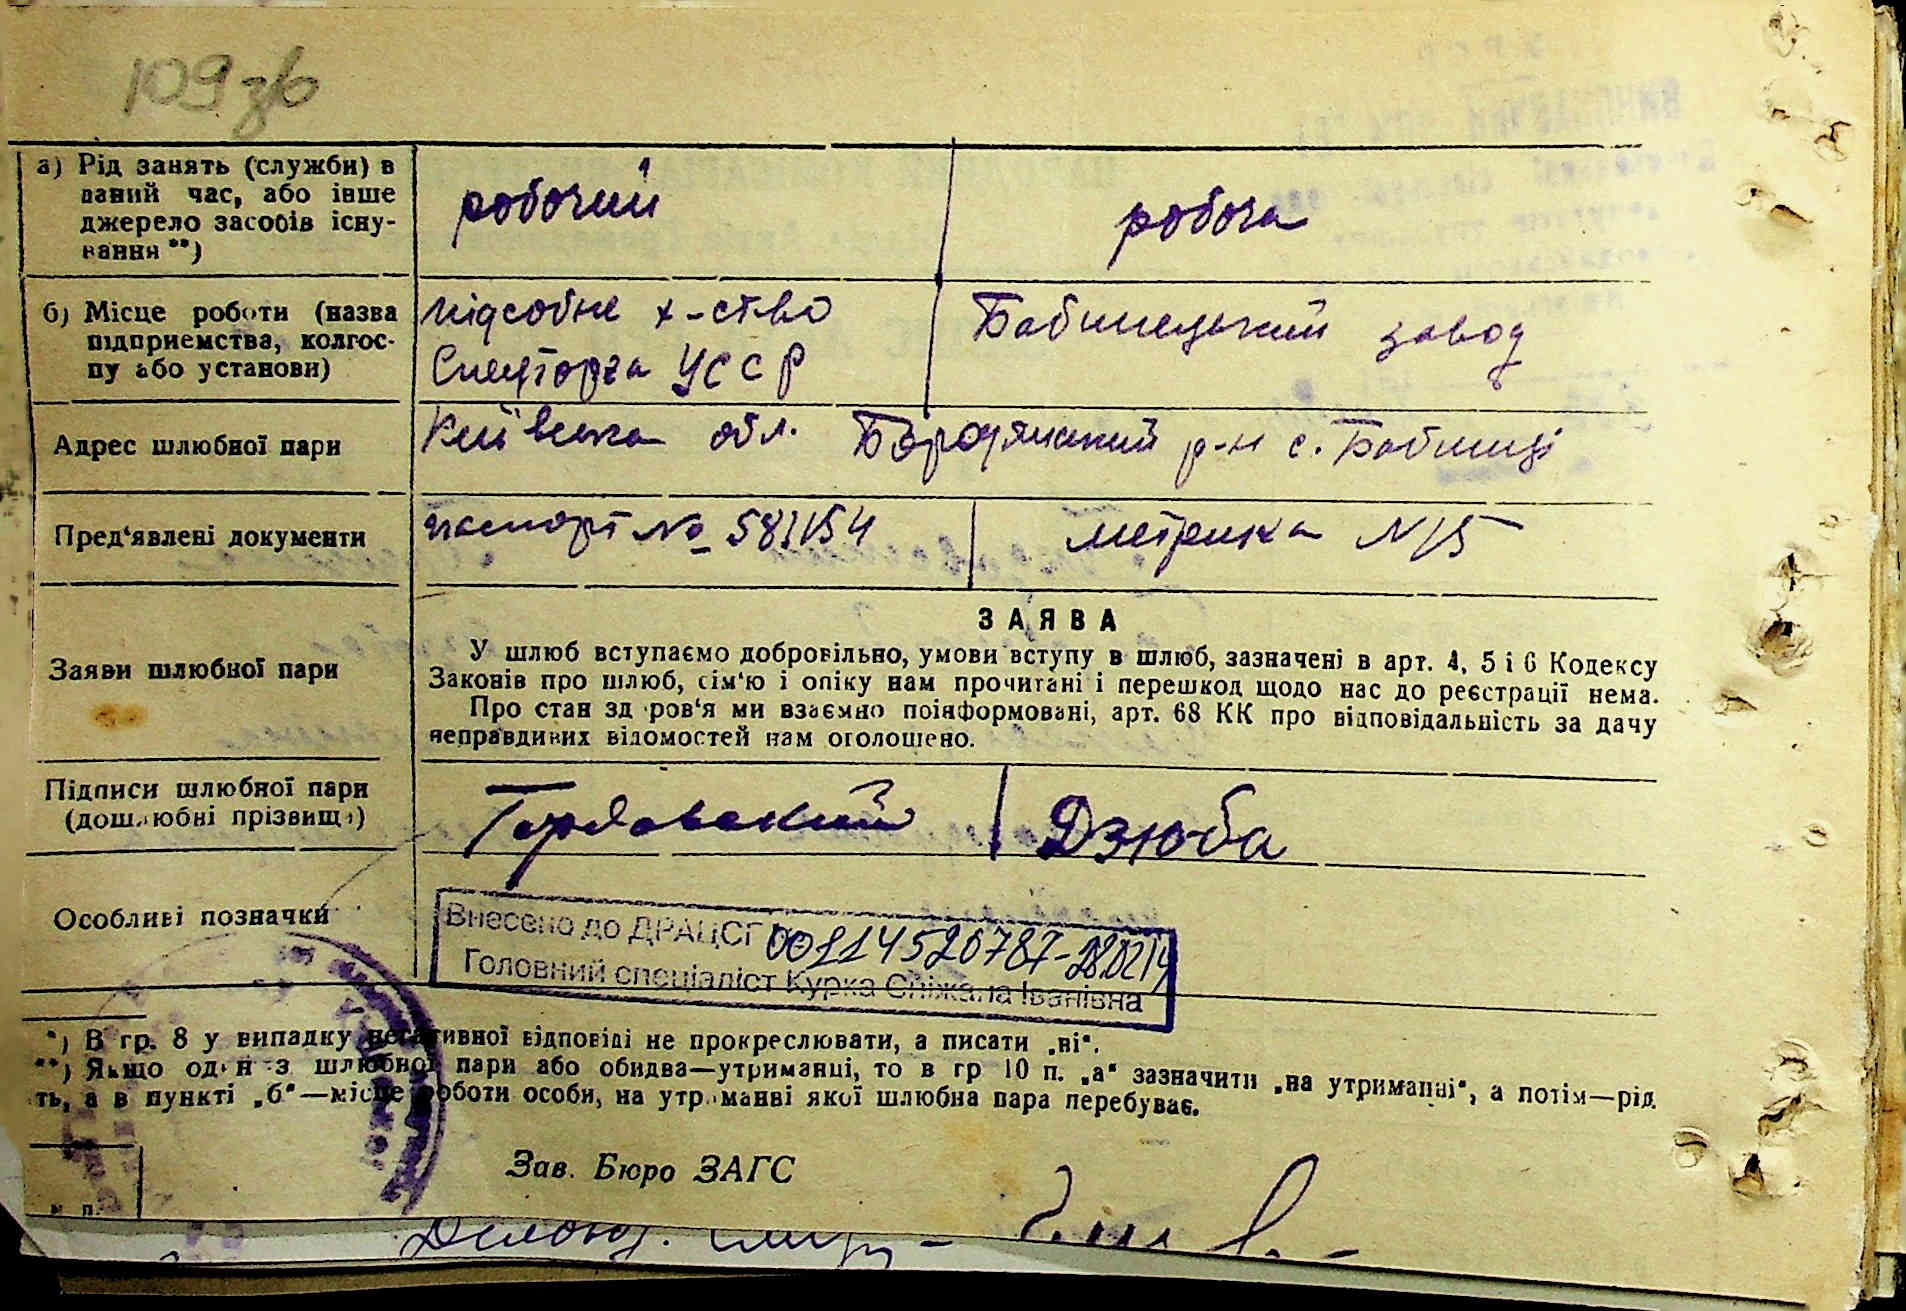 109 зв
а) Рід занять (служби) в
даний час, або інше
джерело засобів існу-
вання **)
робочий
робоча
б) Місце роботи (назва
підприємства, колгос-
пу або установи)
підсобне х-ство
Спецторга УССР
Бабинецький завод
Адрес шлюбної пари
Київська обл. Бородянський р-н с. Бабинці
Пред'явлені документи
паспорт № 581154
метрика N 15
Заяви шлюбної пари
ЗАЯВА
У шлюб вступаємо добровільно, умови вступу в шлюб, зазначені в арт. 4, 5 і 6 Кодексу
Законів про шлюб, сім'ю і опіку нам прочитані і перешкод щодо нас до реєстрації нема.
Про стан здоров'я ми взаємно поінформовані, арт. 68 КК про відповідальність за дачу
неправдивих відомостей нам оголошено.
Підписи шлюбної пари
(дошлюбні прізвища)
Дзюба
Особливі позначки
Внесено до ДРАЦСГ 00114520787-280214
Головний спеціаліст Курка Сніжана Іванівна
*) В гр. 8 у випадку негативної відповіді не прокреслювати, а писати „ні“.
**) Якщо один з шлюбної пари або обидва—утриманці, то в гр 10 п. „а“ зазначити „на утриманні“, а потім—рід
ть, а в пункті „б“—місце роботи особи, на утриманні якої шлюбна пара перебуває.
Зав. Бюро ЗАГС
м п.